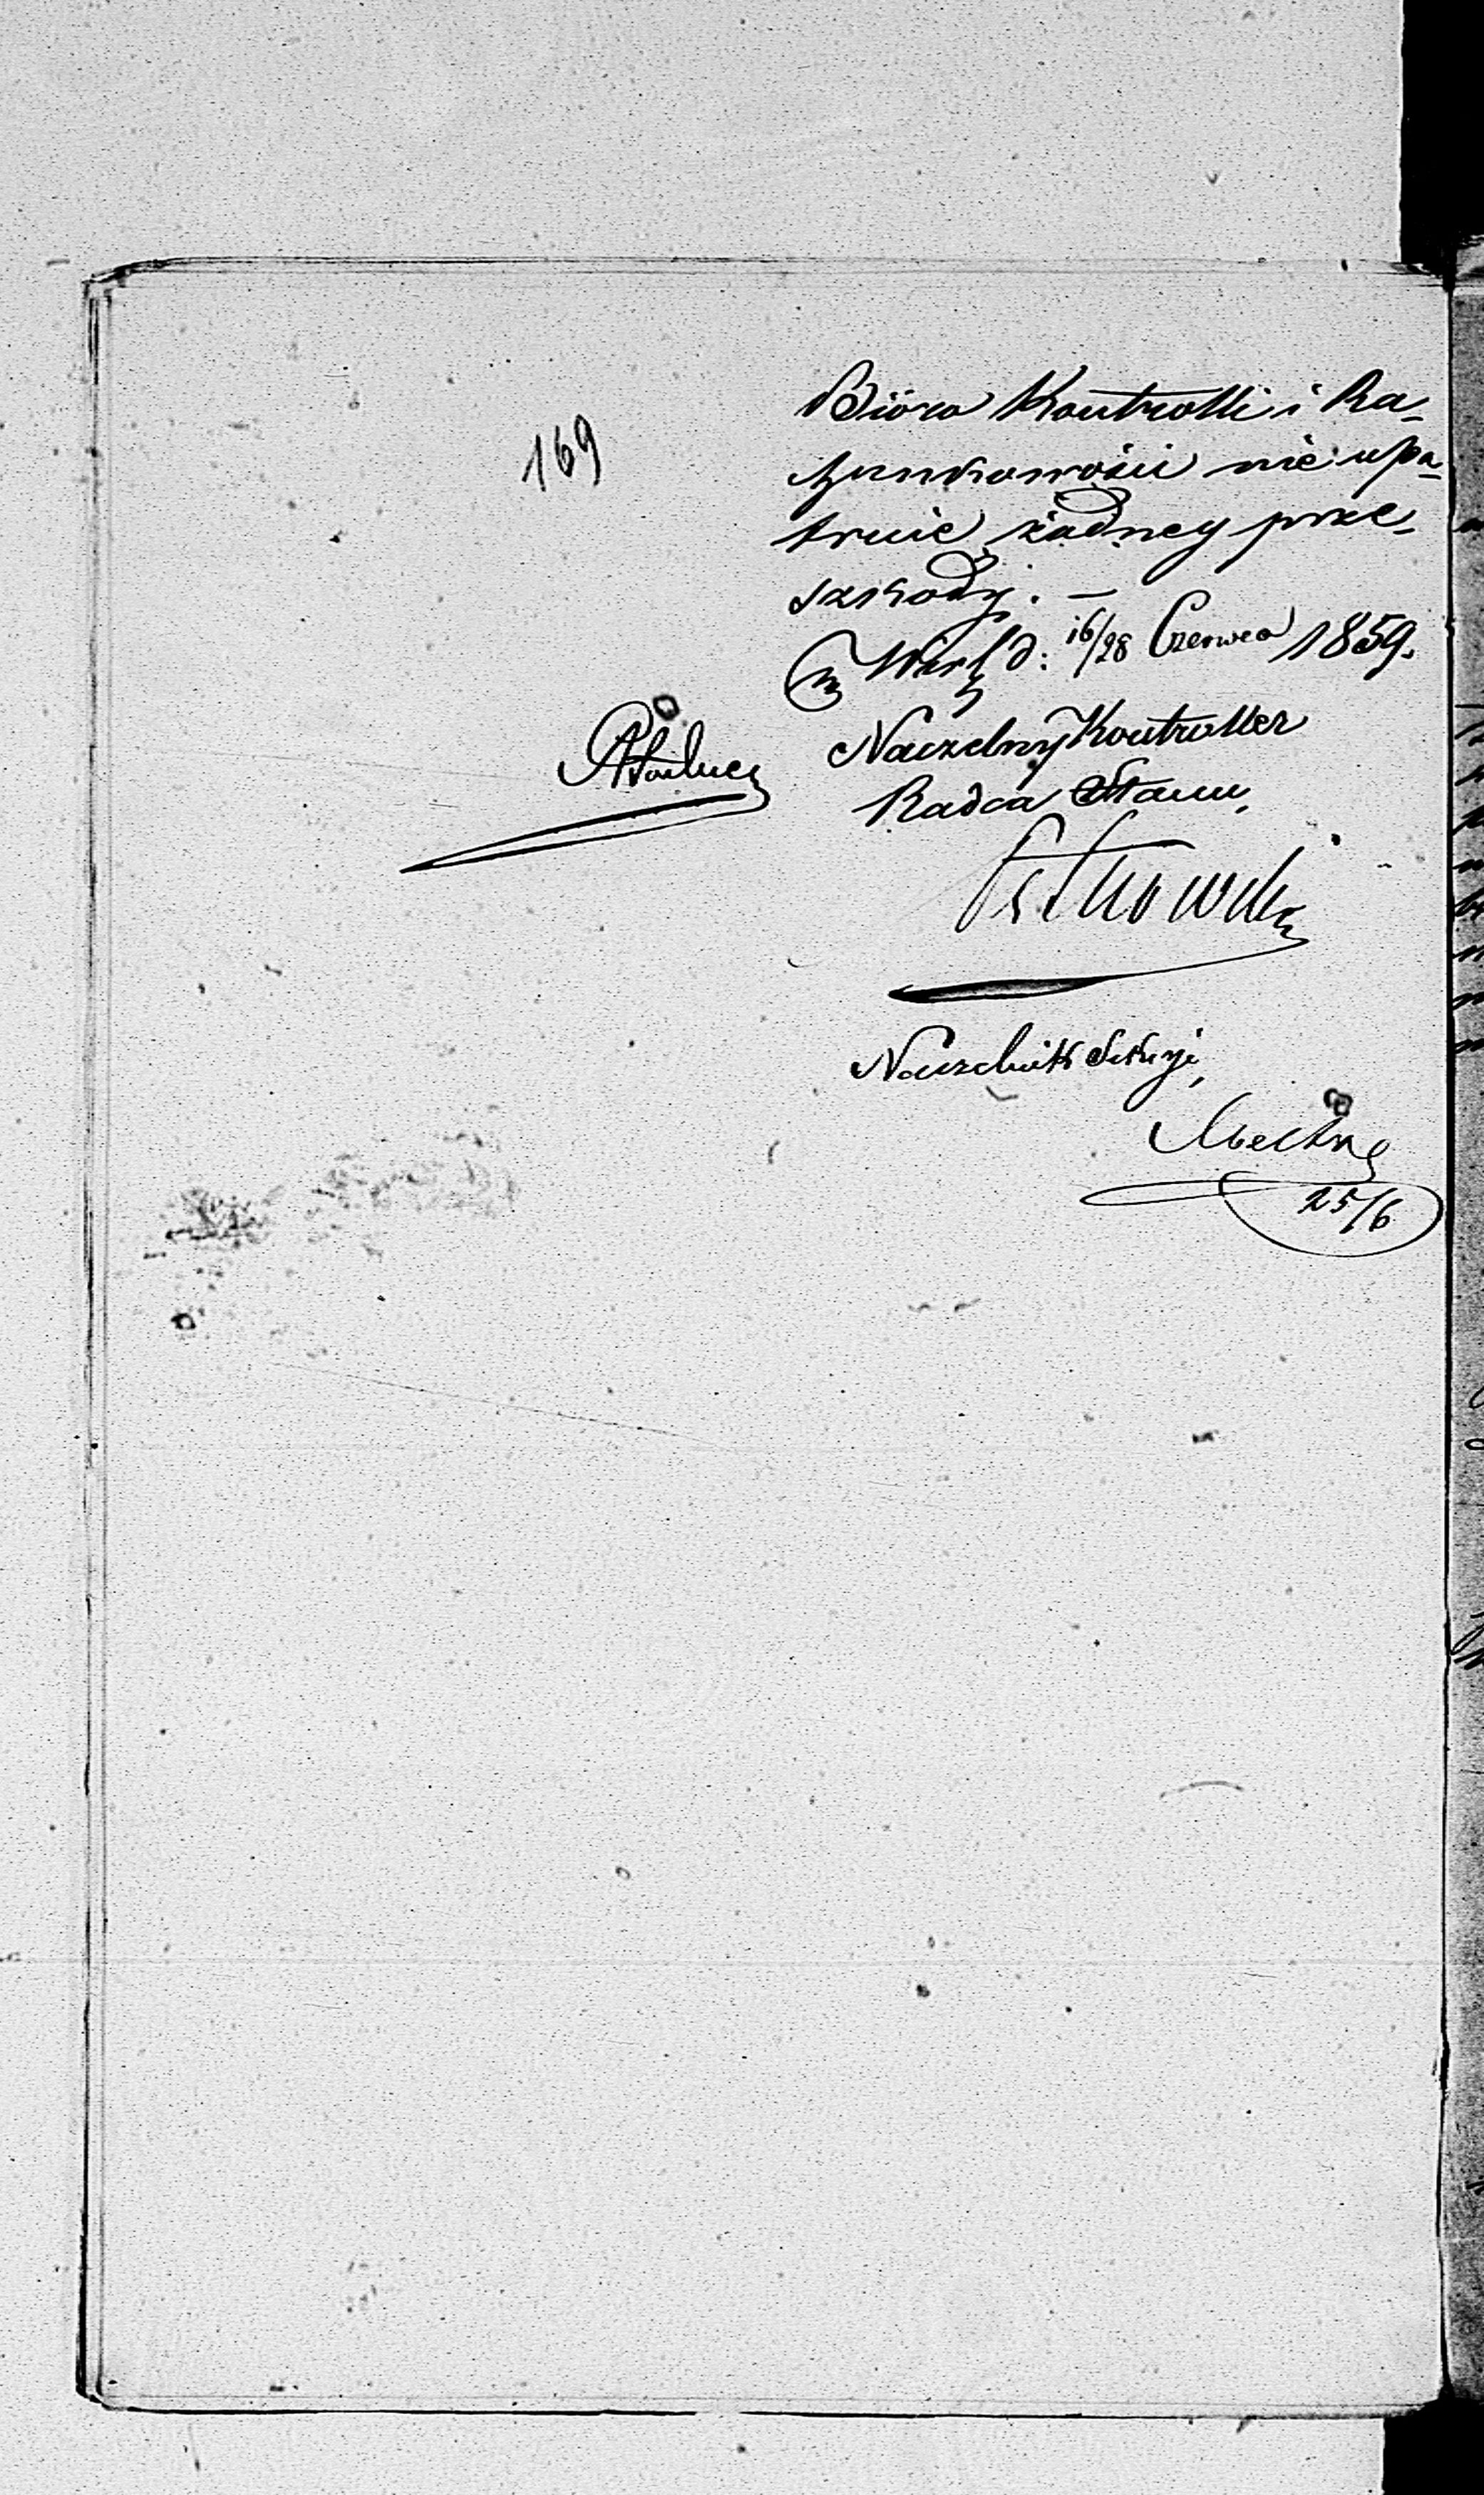 169
Bióro Kontrolli i Ra-
chunkowości nie upa-
truie żadney prze-
szkody. —
w Warsz d: 16/28 Czerwca 1859.
Naczelny Kontroller
Radca Stanu,
Naczelnik Sekcyi,
25/6